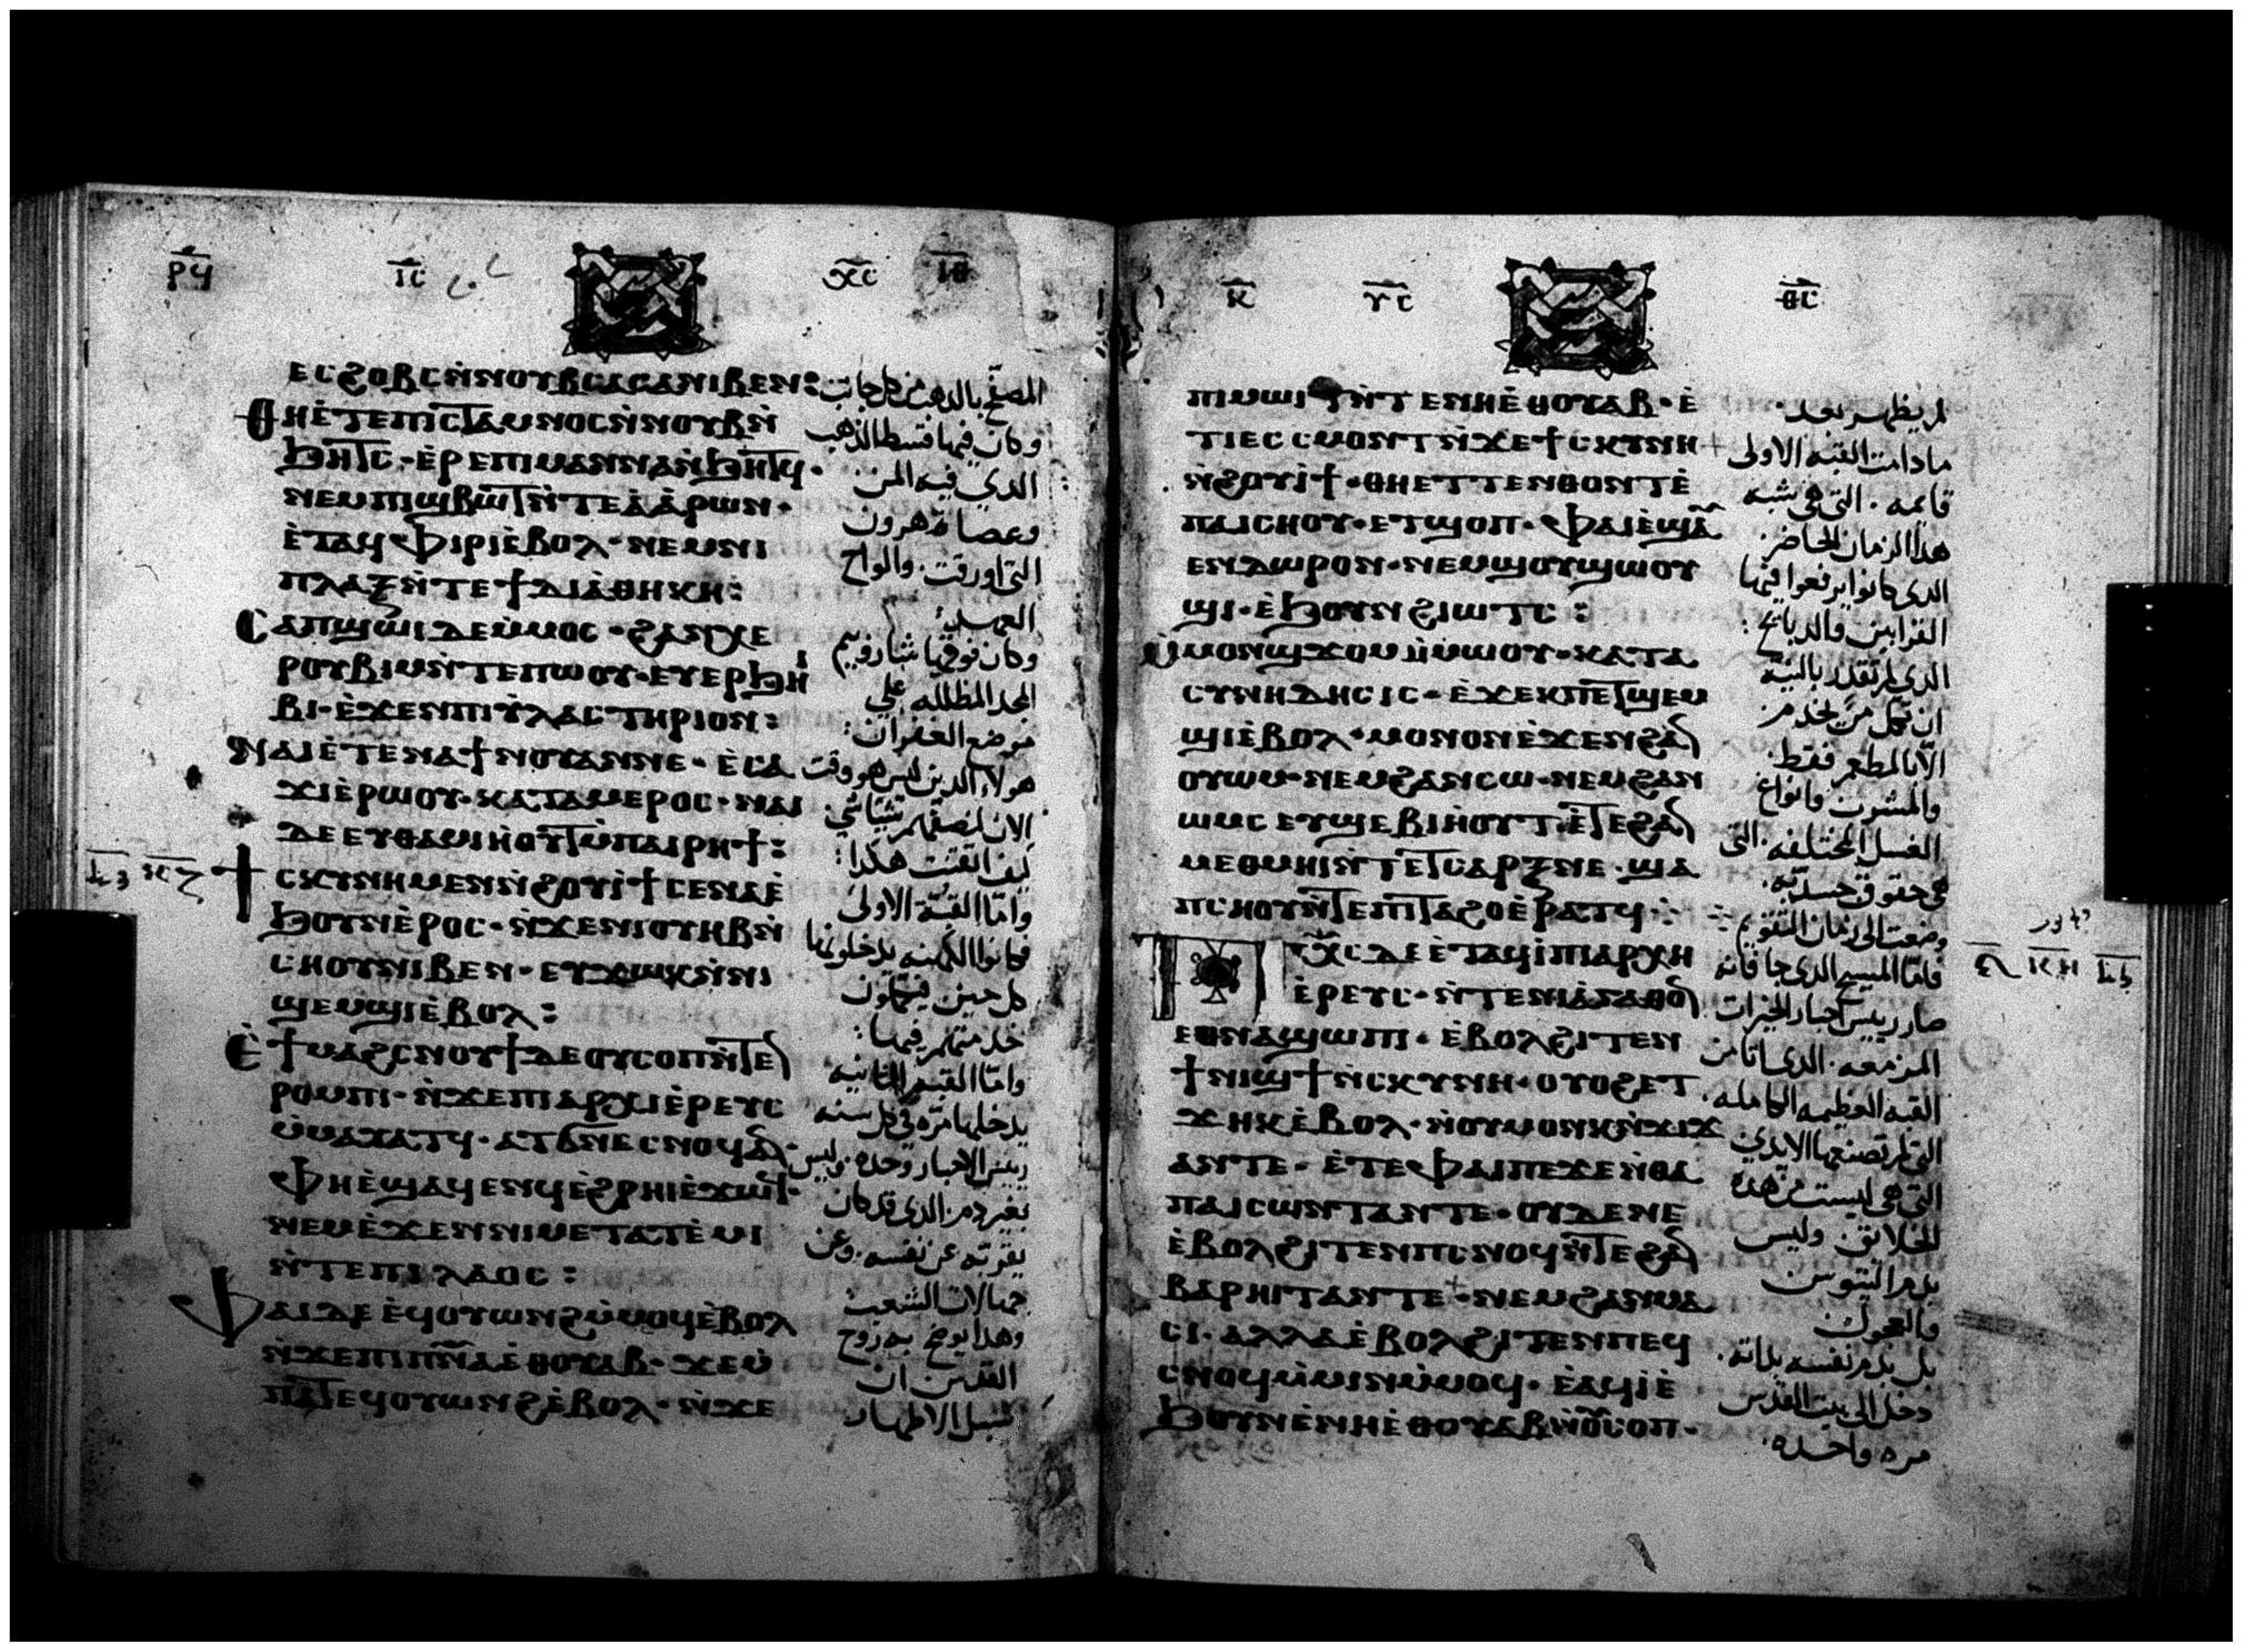 ⲣϥ ⲓⲥ ⲭⲥ ⲓⲑ
ⲉⲥϩⲟⲃⲥ ⲛ̀ⲛⲟⲩⲃ ⲥⲁⲥⲁ ⲛⲓⲃⲉⲛ:
ⲑⲏ ⲉ̀ⲧⲉ ⲡⲓⲥⲧⲁⲙⲛⲟⲥ ⲛ̀ⲛⲟⲩⲃ ⲛ̀
ϧⲏⲧⲥ· ⲉ̀ⲣⲉ ⲡⲓⲙⲁⲛⲛⲁ ⲛ̀ϧⲏⲧϥ·
ⲛⲉⲙ ⲡⲓϣⲃⲱⲧ ⲛ̀ⲧⲉ ⲁ̀ⲁ̀ⲣⲱⲛ·
ⲉ̀ⲧⲁϥⲫⲓⲣⲓ ⲉ̀ⲃⲟⲗ· ⲛⲉⲙ ⲛⲓ
ⲡⲗⲁⲝ ⲛ̀ⲧⲉ ϯⲇⲓⲁ̀ⲑⲏⲕⲏ:
ⲥⲁⲡϣⲱⲓ ⲇⲉ ⲙ̀ⲙⲟⲥ· ϩⲁⲛⲭⲉ
ⲣⲟⲩⲃⲓⲙ ⲛ̀ⲧⲉ ⲡⲱⲟⲩ· ⲉⲩⲉⲣϧⲏⲓ
ⲃⲓ· ⲉ̀ϫⲉⲛ ⲡⲓⲩ̀ⲗⲁⲥⲧⲏⲣⲓⲟⲛ:
ⲛⲁⲓ ⲉ̀ⲧⲉ ⲛⲁϯⲛⲟⲩ ⲁⲛ ⲛⲉ· ⲉ̀ⲥⲁ
ϫⲓ ⲉ̀ⲣⲱⲟⲩ· ⲕⲁⲧⲁ ⲙⲉⲣⲟⲥ· ⲛⲁⲓ
ⲇⲉ ⲉⲩⲑⲁⲙⲓⲏⲟⲩⲧ ⲙ̀ⲡⲁⲓⲣⲏϯ:
ϯⲥⲕⲩⲛⲏ ⲙⲉⲛ ⲛ̀ϩⲟⲩⲓ̀ϯ ⲥⲉⲛⲁ ⲉ̀
ϧⲟⲩⲛ ⲉ̀ⲣⲟⲥ· ⲛ̀ϫⲉ ⲛⲓⲟⲩⲏⲃ ⲛ̀
ⲥⲏⲟⲩ ⲛⲓⲃⲉⲛ· ⲉⲩϫⲱⲕ ⲛ̀ⲛⲓ
ϣⲉⲙϣⲓ ⲉ̀ⲃⲟⲗ:
ⲉ̀ϯⲙⲁϩⲥⲛⲟⲩϯ ⲇⲉ ⲟⲩⲥⲟⲡ ⲛ̀ⲧⲉ
ⲣⲟⲙⲡⲓ· ⲛ̀ϫⲉ ⲡⲓⲁⲣⲭⲓⲉ̀ⲣⲉⲩⲥ
ⲙ̀ⲙⲁⲩⲁⲧϥ· ⲁⲧϭⲛⲉ ⲥⲛⲟϥ ⲁⲛ·
ⲫⲏ ⲉ̀ϣⲁϥⲉⲛϥ ⲉ̀ϩⲣⲏⲓ ⲉ̀ϫⲱϥ·
ⲛⲉⲙ ⲉ̀ϫⲉⲛ ⲛⲓⲙⲉⲧⲁⲧⲉ̀ⲙⲓ
ⲛ̀ⲧⲉ ⲡⲓⲗⲁⲟⲥ:
ⲫⲁⲓ ⲇⲉ ⲉ̀ϥⲟⲩⲱⲛϩ ⲙ̀ⲙⲟϥ ⲉ̀ⲃⲟⲗ
ⲛ̀ϫⲉ ⲡⲓⲡⲛⲁ ⲉ̀ⲑⲟⲩⲁⲃ· ϫⲉ ⲙ̀
ⲡⲁⲧⲉϥⲟⲩⲱⲛϩ ⲉ̀ⲃⲟⲗ· ⲛ̀ϫⲉ
المصفح بالذهب من كل جانب
وكان فيها قسط الذهب
الذي فيه المن
وعصاة هرون
التي اورقت. والواح
العهد:
وكان فوقها شاروبيم
المجد المظلله على
موضع الغفران:
هولاء الذين ليس هو وقت
كيف اتقنت هكذا:
واما القبة الاولى
فكانوا الكهنه يدخلونها
كل حين فيتمون
خدمتهم فيها:
واما القبه الثانيه
يدخلها مرة في كل سنه
رييس الاحبار وحده. وليس
بغير دم. الذي قد كان
يقربه عن نفسه. وعن
جهالات الشعب
وهذا يوضح به روح
القدس ان
سبل الاطهار
ⲕ ⲩⲥ ⲑⲥ
ⲡⲓⲙⲱⲓⲧ ⲛ̀ⲧⲉ ⲛⲏ ⲉ̀ⲑⲟⲩⲁⲃ· ⲉ̀
ⲧⲓ ⲉⲥⲥⲙⲟⲛⲧ ⲛ̀ϫⲉ ϯⲥⲕⲩⲛⲏ
ⲛ̀ϩⲟⲩⲓ̀ϯ· ⲑⲏ ⲉⲧⲧⲉⲛⲑⲟⲛⲧ ⲉ̀
ⲡⲁⲓⲥⲏⲟⲩ· ⲉⲧϣⲟⲡ· ⲫⲁⲓ ⲉ̀ϣⲁⲩ
ⲉⲛ ⲇⲱⲣⲟⲛ· ⲛⲉⲙ ϣⲟⲩϣⲱⲟⲩ
ϣⲓ· ⲉ̀ϧⲟⲩⲛ ϩⲓⲱⲧⲥ:
ⲙ̀ⲙⲟⲛ ϣϫⲟⲙ ⲙ̀ⲙⲱⲟⲩ· ⲕⲁⲧⲁ
ⲥⲩⲛⲏⲇⲏⲥⲓⲥ· ⲉ̀ϫⲉⲕ ⲡⲉⲧϣⲉⲙ
ϣⲓ ⲉ̀ⲃⲟⲗ· ⲙⲟⲛⲟⲛ ⲉ̀ϫⲉⲛ ϩⲁⲛ
ⲟⲩⲱⲙ· ⲛⲉⲙ ϩⲁⲛⲥⲱ· ⲛⲉⲙ ϩⲁⲛ
ⲱⲙⲥ ⲉⲩϣⲉⲃⲓⲏⲟⲩⲧ· ⲉ̀ⲧⲉ ϩⲁⲛ
ⲙⲉⲑⲙⲏⲓ ⲛ̀ⲧⲉ ⲧⲥⲁⲣⲝ ⲛⲉ· ϣⲁ
ⲡⲥⲏⲟⲩ ⲛ̀ⲧⲉ ⲡⲓⲧⲁϩⲟ ⲉ̀ⲣⲁⲧϥ:
ⲡⲭⲥ ⲇⲉ ⲉ̀ⲧⲁϥⲓ̀ ⲡⲓⲁⲣⲭⲏ
ⲉ̀ⲣⲉⲩⲥ· ⲛ̀ⲧⲉ ⲛⲓⲁ̀ⲅⲁⲑⲟⲛ
ⲉⲑⲛⲁϣⲱⲡⲓ· ⲉ̀ⲃⲟⲗ ϩⲓⲧⲉⲛ
ϯⲛⲓϣϯ ⲛ̀ⲥⲕⲩⲛⲏ· ⲟⲩⲟϩ ⲉⲧ
ϫⲏⲕ ⲉ̀ⲃⲟⲗ· ⲛ̀ⲟⲩⲙⲟⲛⲕ ⲛ̀ϫⲓϫ
ⲁⲛ ⲧⲉ· ⲉ̀ⲧⲉ ⲫⲁⲓ ⲡⲉ ϫⲉ ⲛ̀ⲑⲁ
ⲡⲁⲓⲥⲱⲛⲧ ⲁⲛ ⲧⲉ· ⲟⲩⲇⲉ ⲛⲉ
ⲉ̀ⲃⲟⲗ ϩⲓⲧⲉⲛ ⲡⲥⲛⲟϥ ⲛ̀ⲧⲉ ϩⲁⲛ
ⲃⲁⲣⲏⲓⲧ ⲁⲛ ⲧⲉ· ⲛⲉⲙ ϩⲁⲛⲙⲁ
ⲥⲓ· ⲁⲗⲗⲁ ⲉ̀ⲃⲟⲗ ϩⲓⲧⲉⲛ ⲡⲉϥ
ⲥⲛⲟϥ ⲙ̀ⲙⲓⲛ ⲙ̀ⲙⲟϥ· ⲉ̀ⲁϥⲓ̀ ⲉ̀
ϧⲟⲩⲛ ⲉ̀ⲛⲏ ⲉ̀ⲑⲟⲩⲁⲃ ⲛ̀ⲟⲩⲥⲟⲡ·
لم يظهر بعد.
ما دامت القبه الاولى
قايمه. التي هي شبه
هذا الزمان الحاضر
الذي كانوا يرفعوا فيها
القرابين والذبايح:
الذي لم تقدر بالنية
ان تكمل من يخدم
الا بالمطعم فقط.
والمشرب وانواع
الغسل المختلفه. التي
هي حقوق جسدية.
وضعت الى زمان التقويم
فاما المسيح الذي جا فانه
صار رييس احبار الخيرات
المزمعه. الذي اتا من
القبه العظيمه الكامله
التي لم تصنعها الايدي
التي هي ليست من هذه
الخلايق. وليس
بدم التيوس
والعجول
بل بدم نفسه بذاته.
دخل الى بيت القدس
مره واحده.